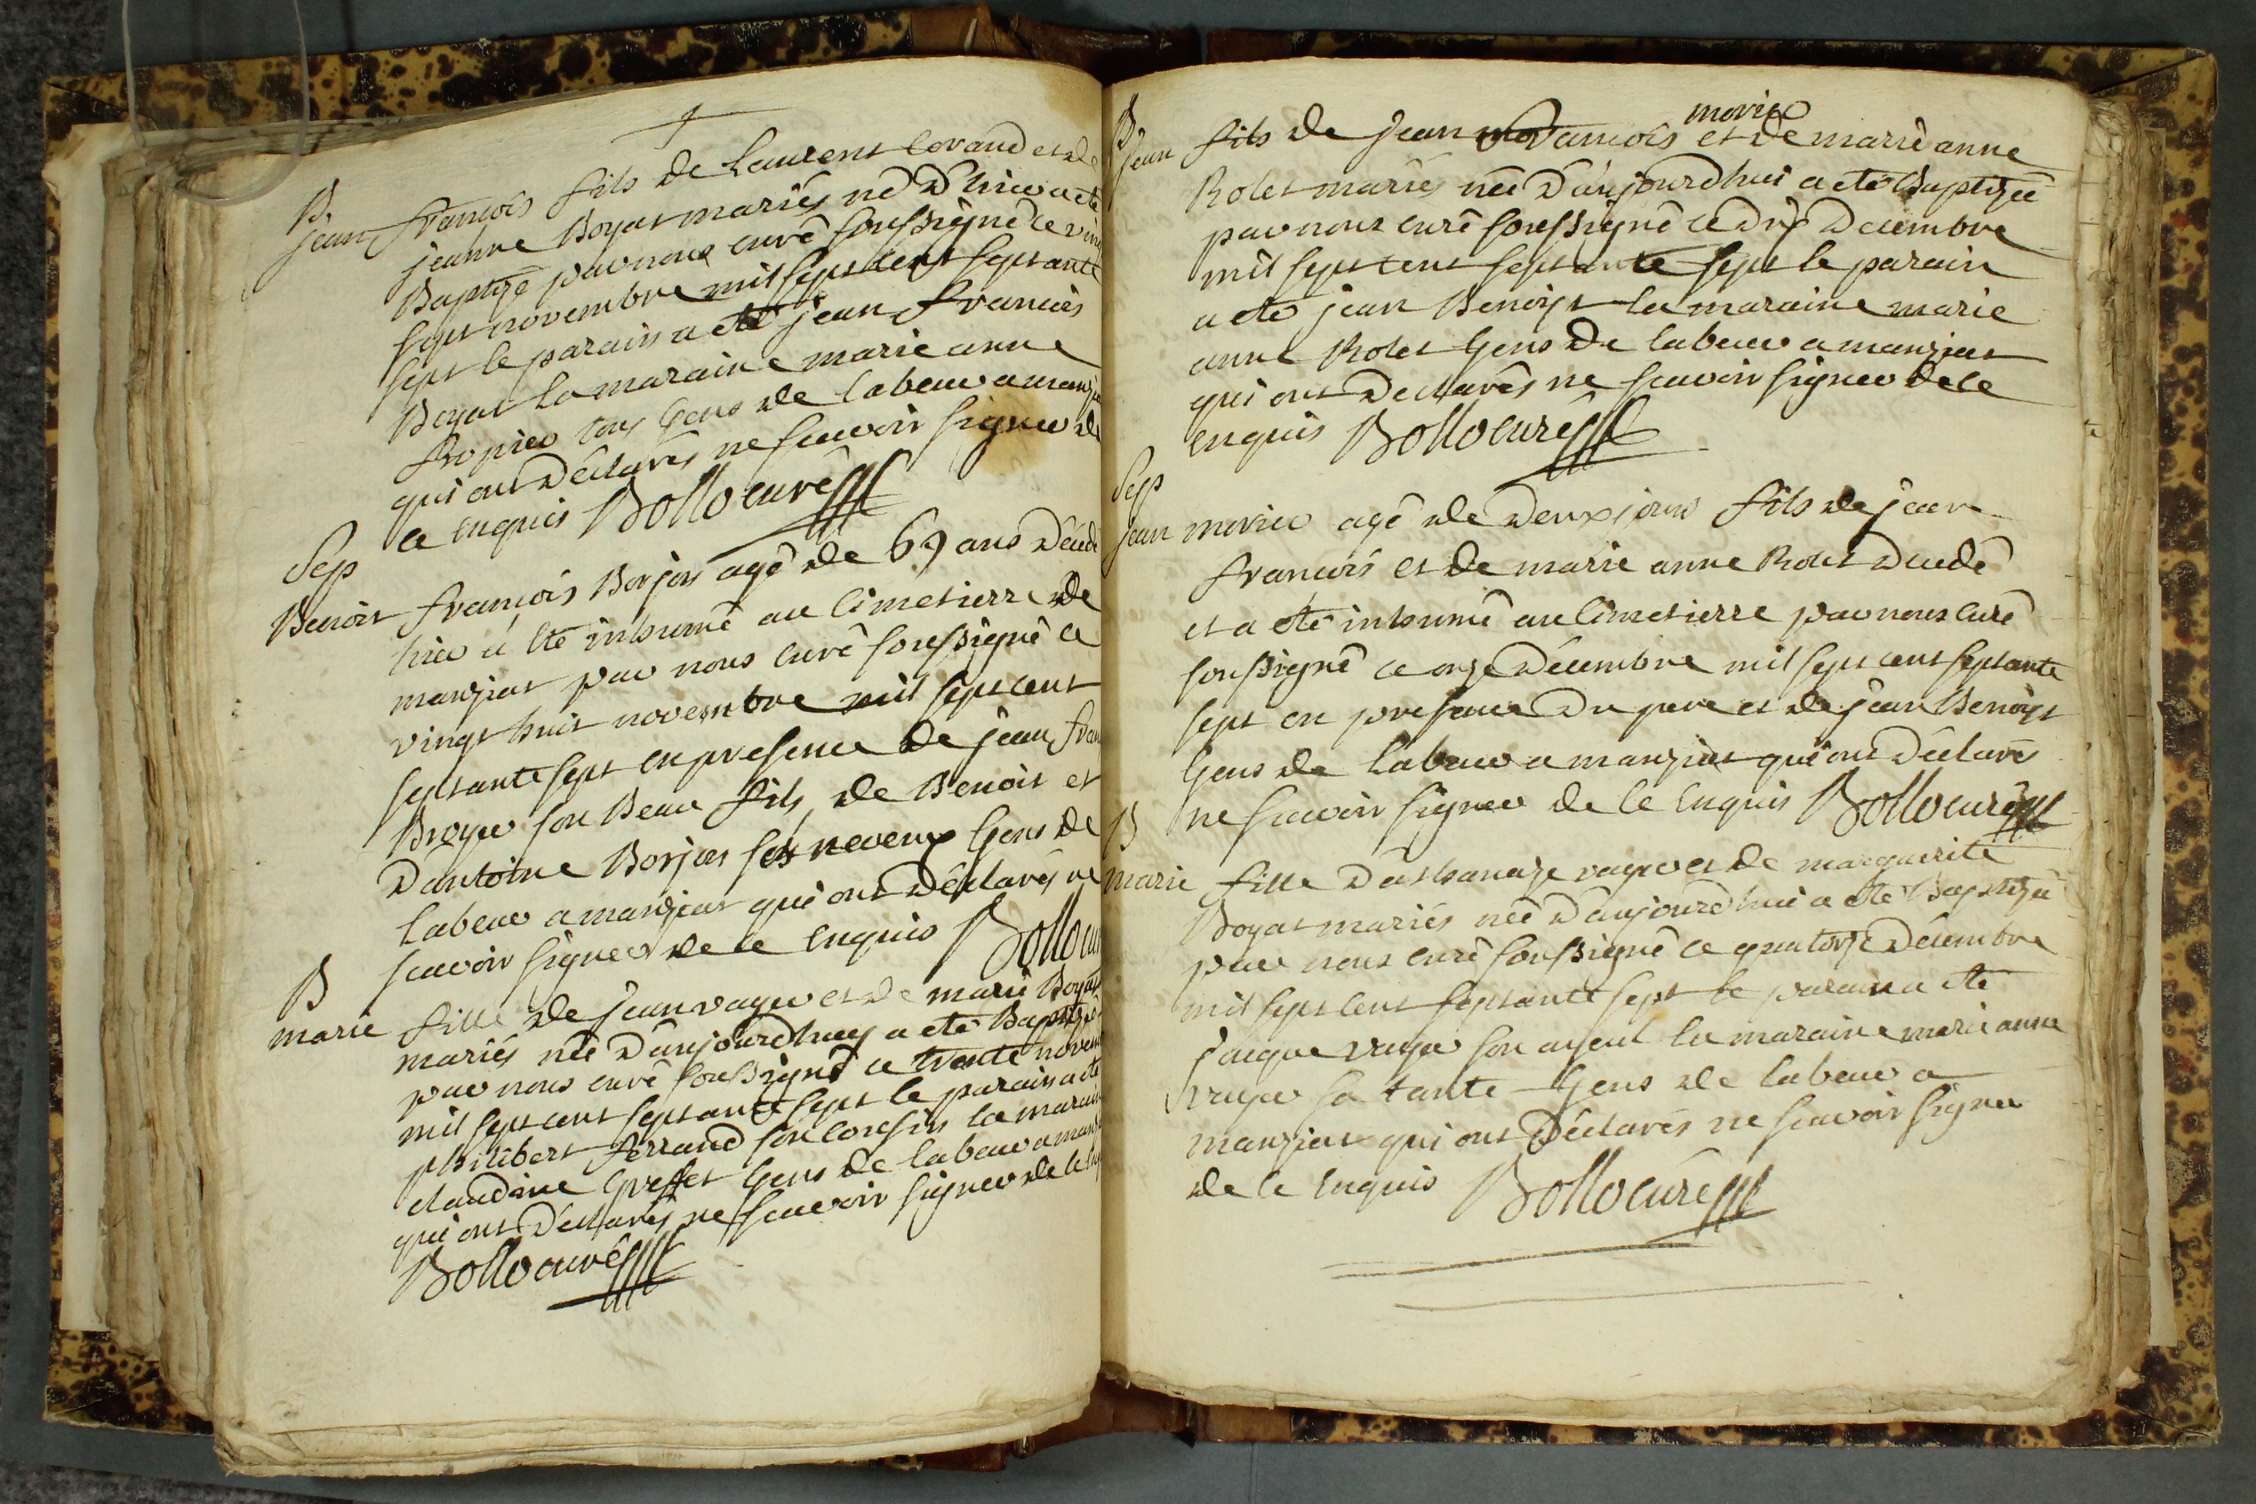 B.
jean françois fils de Laurent Corand et de
jeanne Boyat mariés né d'hier a eté
Baptizé par nous curé soussigné ce vint
sept novembre mil sept cent septante
sept le parain a eté jean françois
Boyat la maraine marie anne
tous gens de labeur a manziat
qui ont déclarés ne scavoir signer de
ce enquis Bollo curé
Sep
Benoit françois Borjon agé de 69 ans décédé
hier a eté inhumé au cimetierre de
manziat par nous curé soussigné ce
vingt huit novembre mil sept cent
septante sept en presence de jean fran
Broyer son Beau fils, de Benoit et
d'antoine Borjon ses neveux gens de
labeur a manziat qui ont déclarés ne
scavoir signer de ce enquis Bollo cu
B
marie fille de jean vayer et de marie Boyat
mariés née d'aujourdhuy a eté Baptizée
par nous curé soussigné ce trente novem
mil sept cent septante sept le parain a eté
philibert ferrand son cousin la maraine
claudine greffet gens de labeur a manz
qui ont déclarés ne scavoir signer de ce enq
Bollo curé
B.
jean fils de jean françois morier et de marie anne
Rolet mariés née d'aujourdhui a eté Baptizée
par nous curé soussigné ce dix decembre
mil sept cent septante sept le parain
a eté jean Benoist la maraine marie
anne Rolet gens de labeur a manziat
qui ont déclarés ne scavoir signer de ce
enquis Bollo curé
Sep
jean morier agé de deux jours fils de jean
françois et de marie anne Rolet decedé
et a eté inhumé au cimetierre par nous curé
soussigné ce onze décembre mil sept cent septante
sept en presence du pere et de jean Benoist
gens de labeur a manziat qui ont déclarés
ne scavoir signer de ce enquis Bollo curé
B
marie fille d'athanaze vayer et de marguerite
Boyat mariés née d'aujourdhui a eté Baptizée
par nous curé soussigné ce quatorze décembre
mil sept cent septante sept le parain a eté
jacque vayer son ayeul la maraine marie anne
vayer sa tante gens de labeur a
manziat qui ont déclarés ne scavoir signer
de ce enquis Bollo curé